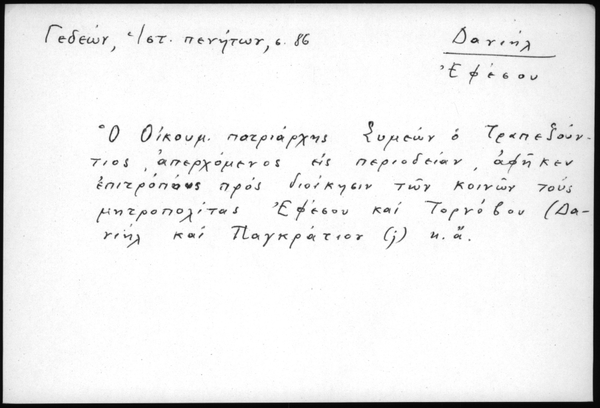 Γεδεών, Ἱστ. πενήτων, σ. 86
Δανιήλ
Ἐφέσου
Ὁ Οἰκουμ. πατριάρχης Συμεών ὁ Τραπεζούν-
τιος, ἀπερχόμενος εἰς περιοδείαν, ἀφῆκεν
ἐπιτρόπους πρός διοίκησιν τῶν κοινῶν τούς
μητροπολίτας Ἐφέσου καί Τορνόβου (Δα-
νιήλ καί Παγκράτιον (;) κ.ἄ.